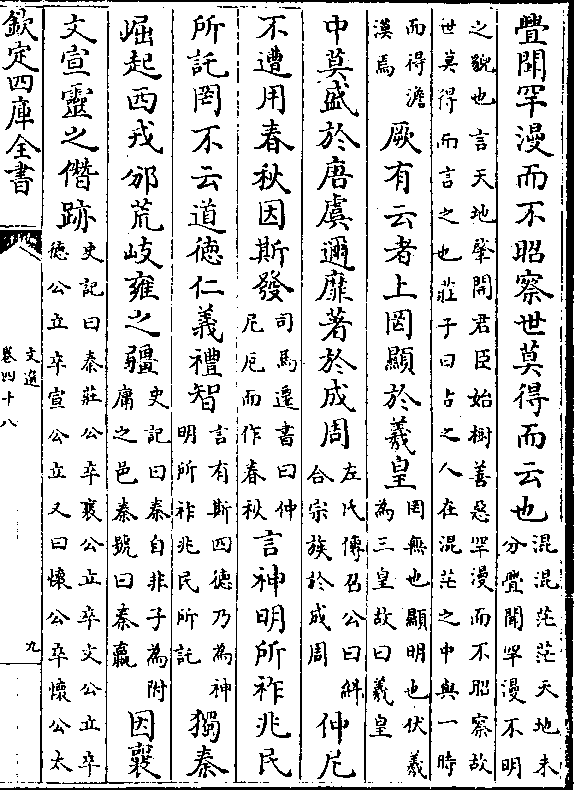 亹聞罕漫而不昭察世莫得而云也混混茫茫天地未
分亹聞罕漫不明
之貌也言天地肇開君臣始樹善惡罕漫而不昭察故
世莫得而言之也莊子曰占之人在混茫之中與一時
而得澹
漠焉厥有云者上罔顯於羲皇罔無也顯明也伏羲
為三皇故曰羲皇
中莫盛於唐虞邇靡著於成周左氏傳召公曰糾
合宗族於成周仲尼
不遭用春秋因斯發司馬遷書曰仲
尼厄而作春秋言神明所祚兆民
所託罔不云道德仁義禮智言有斯四德乃為神
明所祚兆民所託獨秦
崛起西戎邠荒岐雍之疆史記曰秦自非子為附
庸之邑秦號曰秦嬴因襄
文宣靈之僭跡史記曰秦莊公卒襄公立卒文公立卒
德公立卒宣公立又曰懷公卒懷公太
欽定四庫全書
文選
卷四十八
九